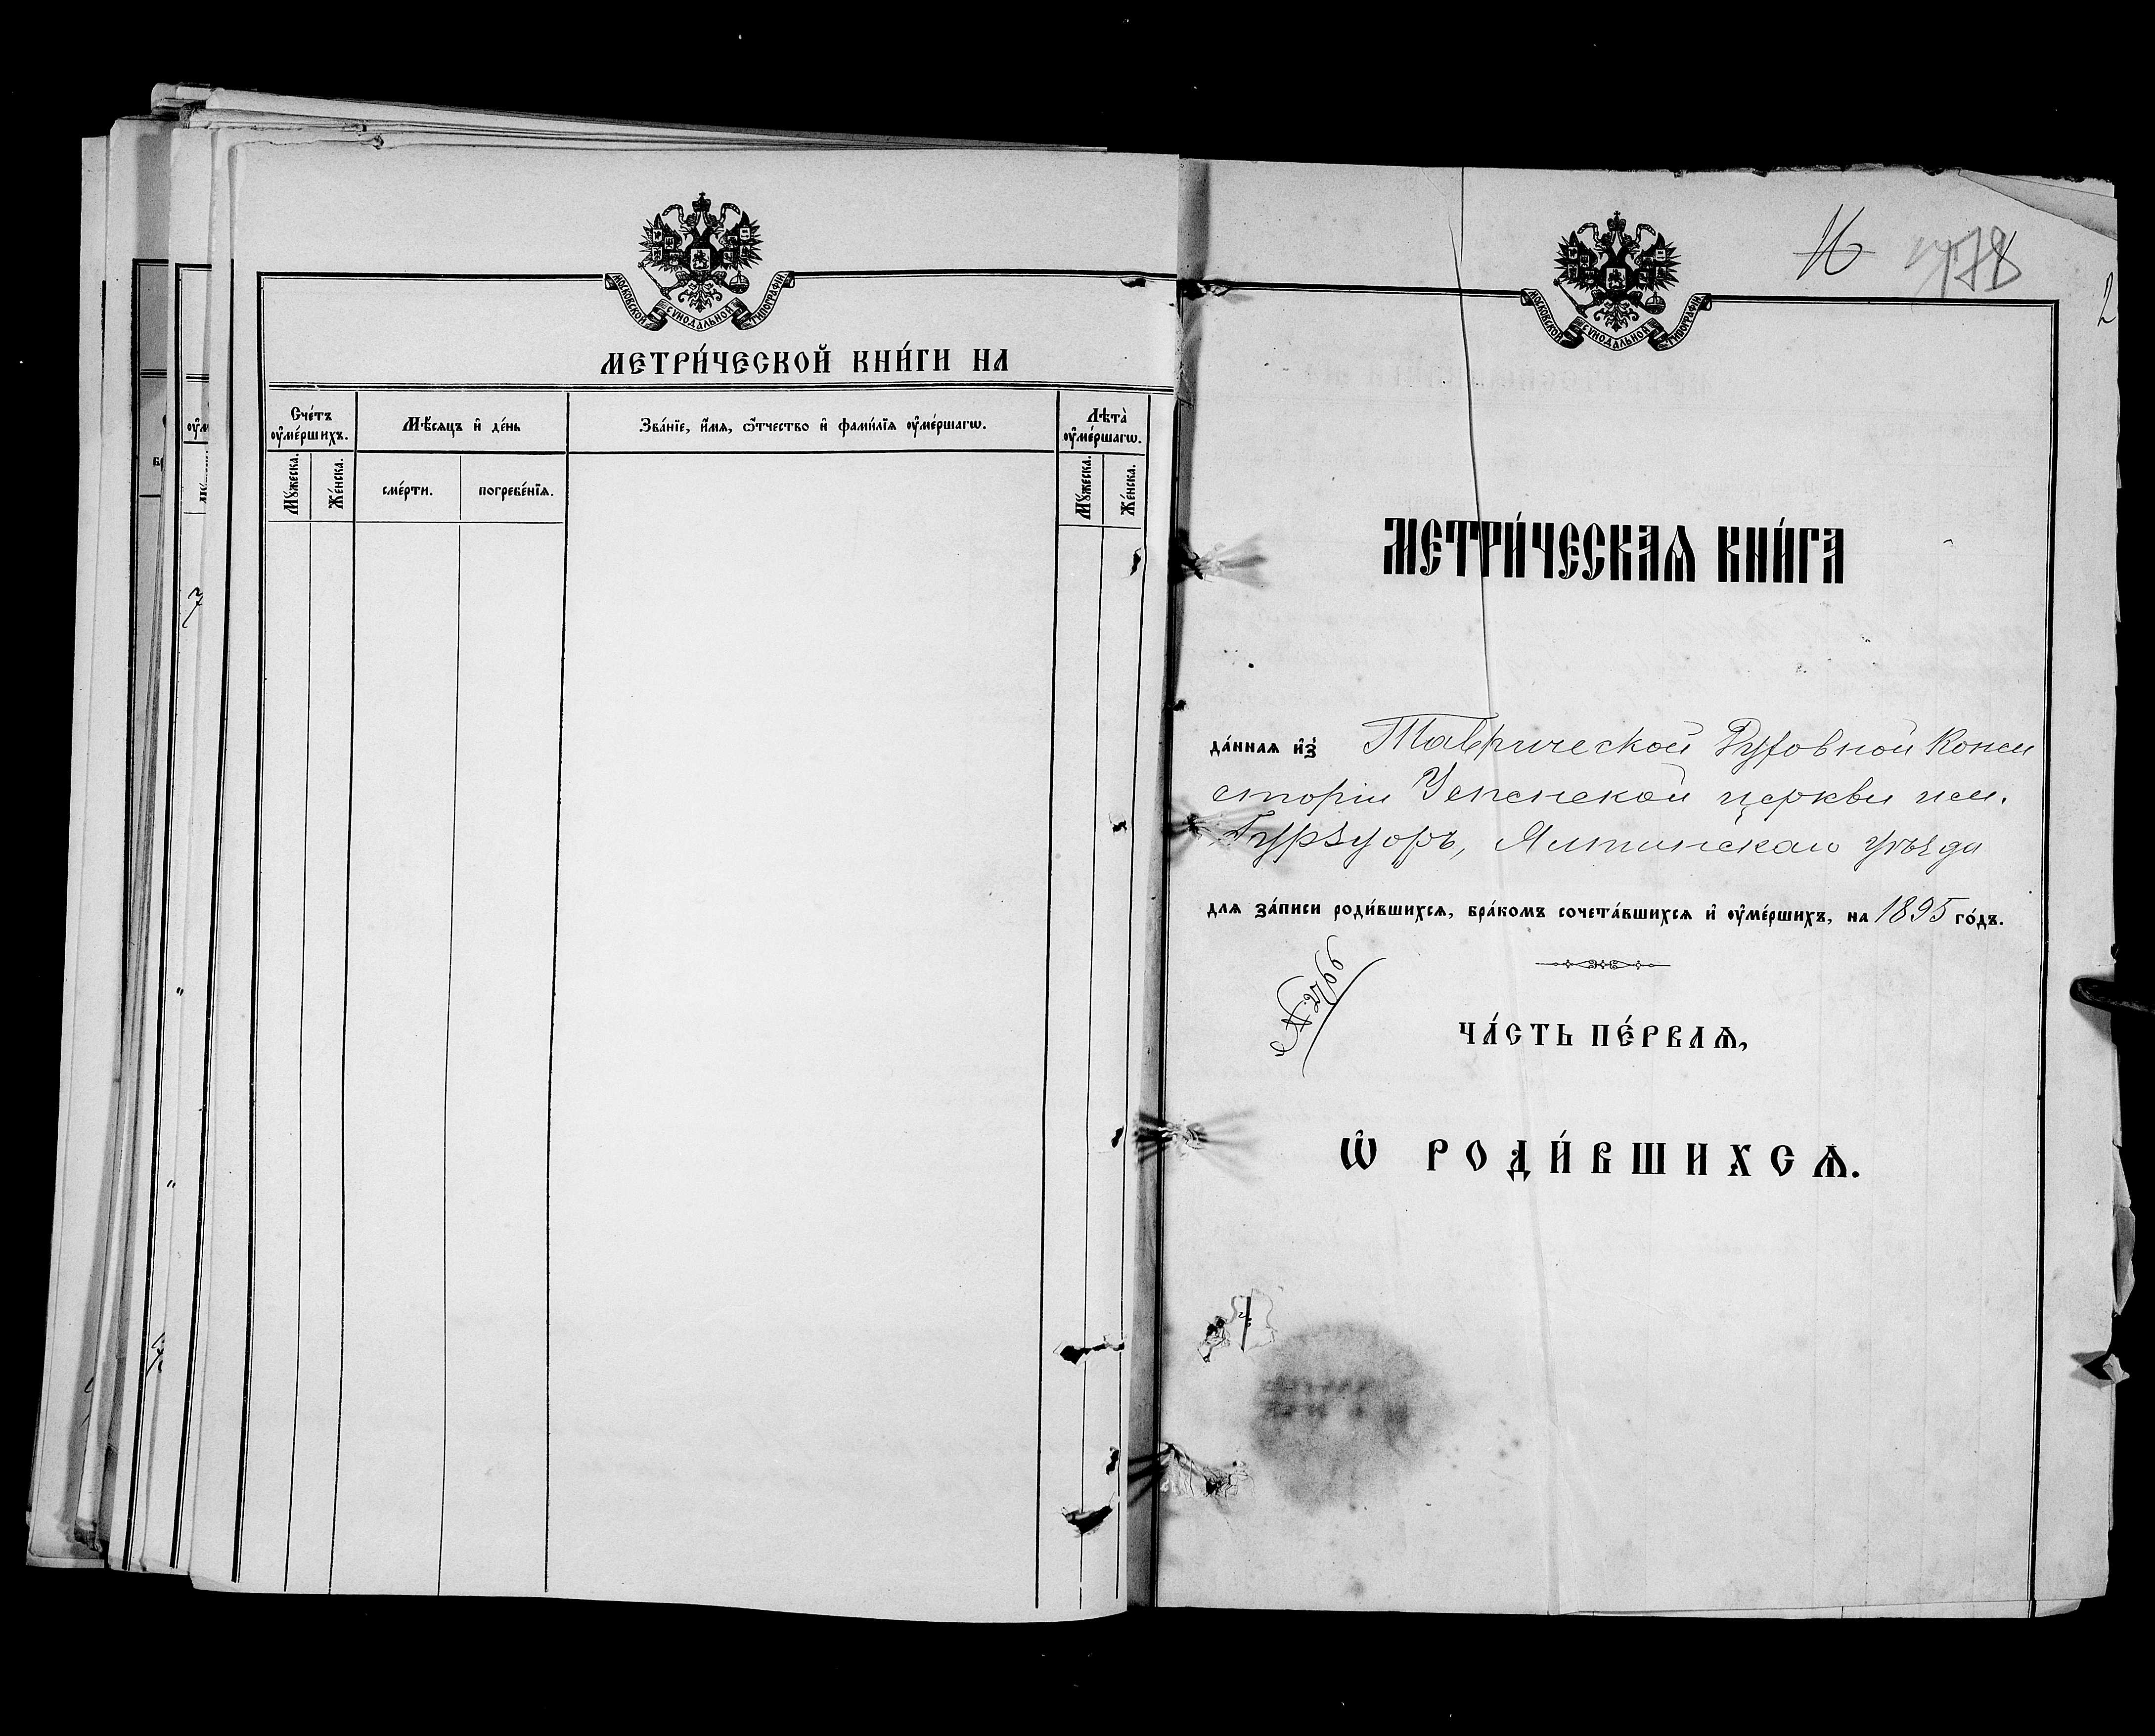 МОСКОВСКОЙ СѴНОДАЛЬНОЙ ТИПОГРАФІИ
МЕТРИ́ЧЕСКОЙ КНИ́ГИ НА
Сче́тъ ᲂу҆ме́ршихъ.
Мѣ́сяцъ и҆ де́нь
Зва́нїе, и҆́мѧ, ѻ҆́тчество и҆ фами́лїѧ ᲂу҆ме́ршагѡ.
Лѣта̀ ᲂу҆ме́ршагѡ.
Мꙋ́жеска.
Же́нска.
сме́рти.
погребе́нїѧ.
Мꙋ́жеска.
Же́нска.
МОСКОВСКОЙ СѴНОДАЛЬНОЙ ТИПОГРАФІИ
16
2
МЕТРИ́ЧЕСКАѦ КНИ́ГА
да́ннаѧ и҆з̾ Таврической Духовной Конси
сторіи Успенской церкви им.
Гурзуфъ, Ялтинскаго уѣзда
для за́писи роди́вшихсѧ, бра́комъ сочета́вшихсѧ и҆ ᲂу҆ме́ршихъ, на 1895 го́дъ.
№ 2766
ЧА́СТЬ ПЕ́РВАѦ,
Ѡ҆ РОДИ́ВШИХСѦ.